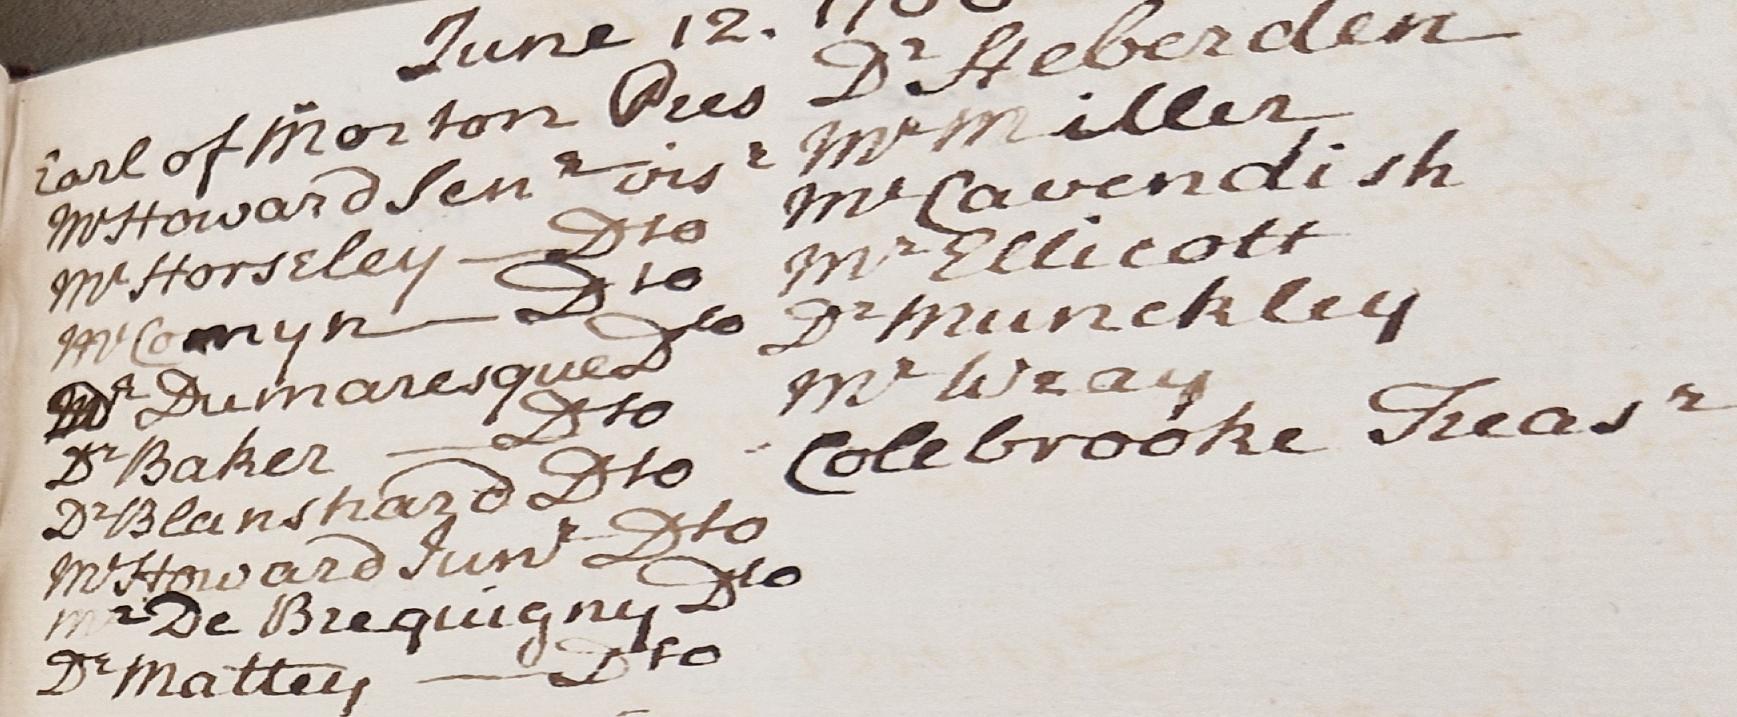 June 12. 1766
Earl of Morton Pres
Mr Howard Senr visr
Mr Horseley — Dto
Mr Comyn — Dto
Dr Dumaresque Dto
Dr Baker — Dto
Dr Blanshard Dto
Mr Howard Junr Dto
mr De Brequigny Dto
Dr Mattey — Dto
Dr Heberden
Mr Miller
Mr Cavendish
Mr Ellicott
Dr Munckley
Mr Wray
Colebrooke Treasr